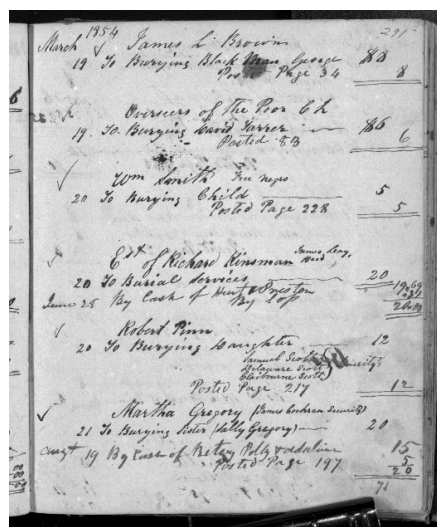 291
March 1854 James L. Brown
19 To Burying Black Man George $8
Posted Page 34 8
Overseers of the Poor Ch
19. To Burying David Farrer $6
Posted 6
Wm Smith Free negro
20 To Burying Child 5
Posted Page 228 5
Est of Richard Kinsman James
20 To Burial Services 20
June 28 By Cash of Preston
By
Robert Pinn
20 To Burying Daughter 12
Samuel Scott
Delaware Scott Security
Claibourne Scott
Posted Page 217 12
Martha Gregory (James Cochran Security)
21 To Burying Sister (Sally Gregory) 20
Augt 19 By Cash of Betsy Polly & 15
Posted Page 197 5
20
71